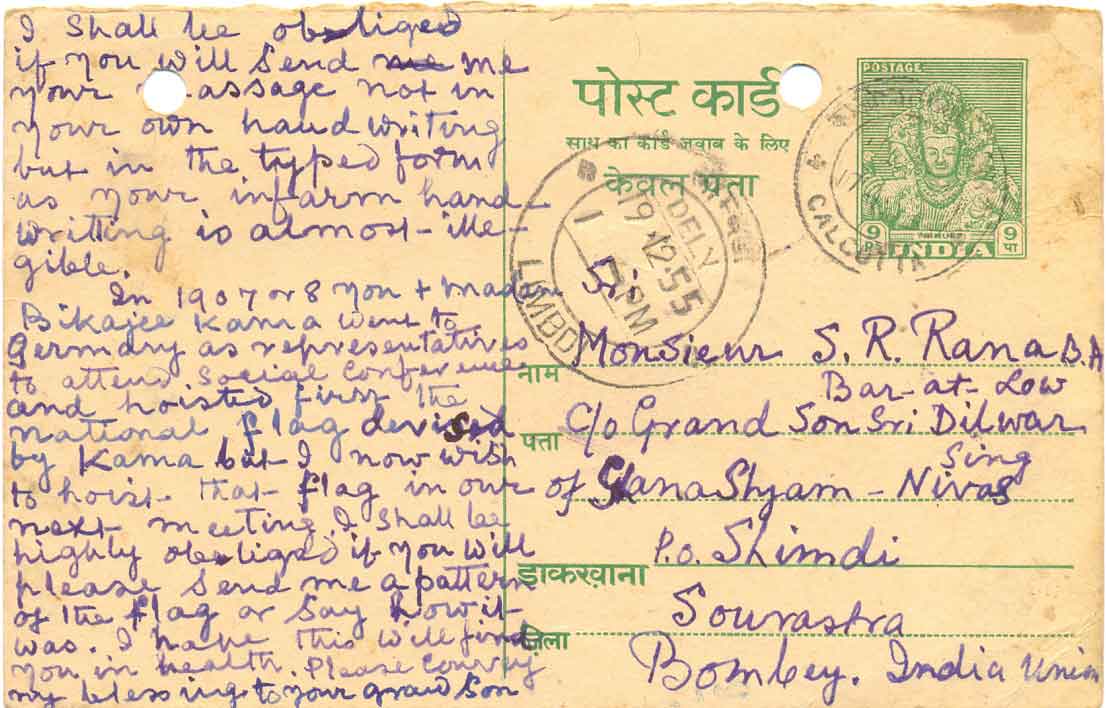 I shall be obeliged
if you will send me me
your massage not in
your own hand writing
but in the typed form
as your infarm hand-
writting is almost-ille-
gible.
In 1907 or 8 you + madam
Bikajee Kama went to
Germany as representatives
to attend Social Conference
and hoisted first the
national flag devised
by Kama but I now wish
to hoist that flag in our
next meeting. I shall be
highly obeliged if you will
please send me a pattern
of the flag or say how it
was. I hape this will find
you in health. Please convey
my blessing to your grand son
पोस्ट कार्ड
साथ का कार्ड जवाब के लिए
केवल पता
POSTAGE
9 पा
INDIA
9 पा
CALCUTTA
DELY
19.12.55
1 PM
LIMBDI
Sri
नाम Monsieur S. R. Rana B.A
Bar-at-Low
पता C/o Grand Son Sri Dilwar
Sing
of GhanaShyam - Nivas
P.O. Shimdi
डाकखाना
Sourastra
ज़िला
Bombey. India Union